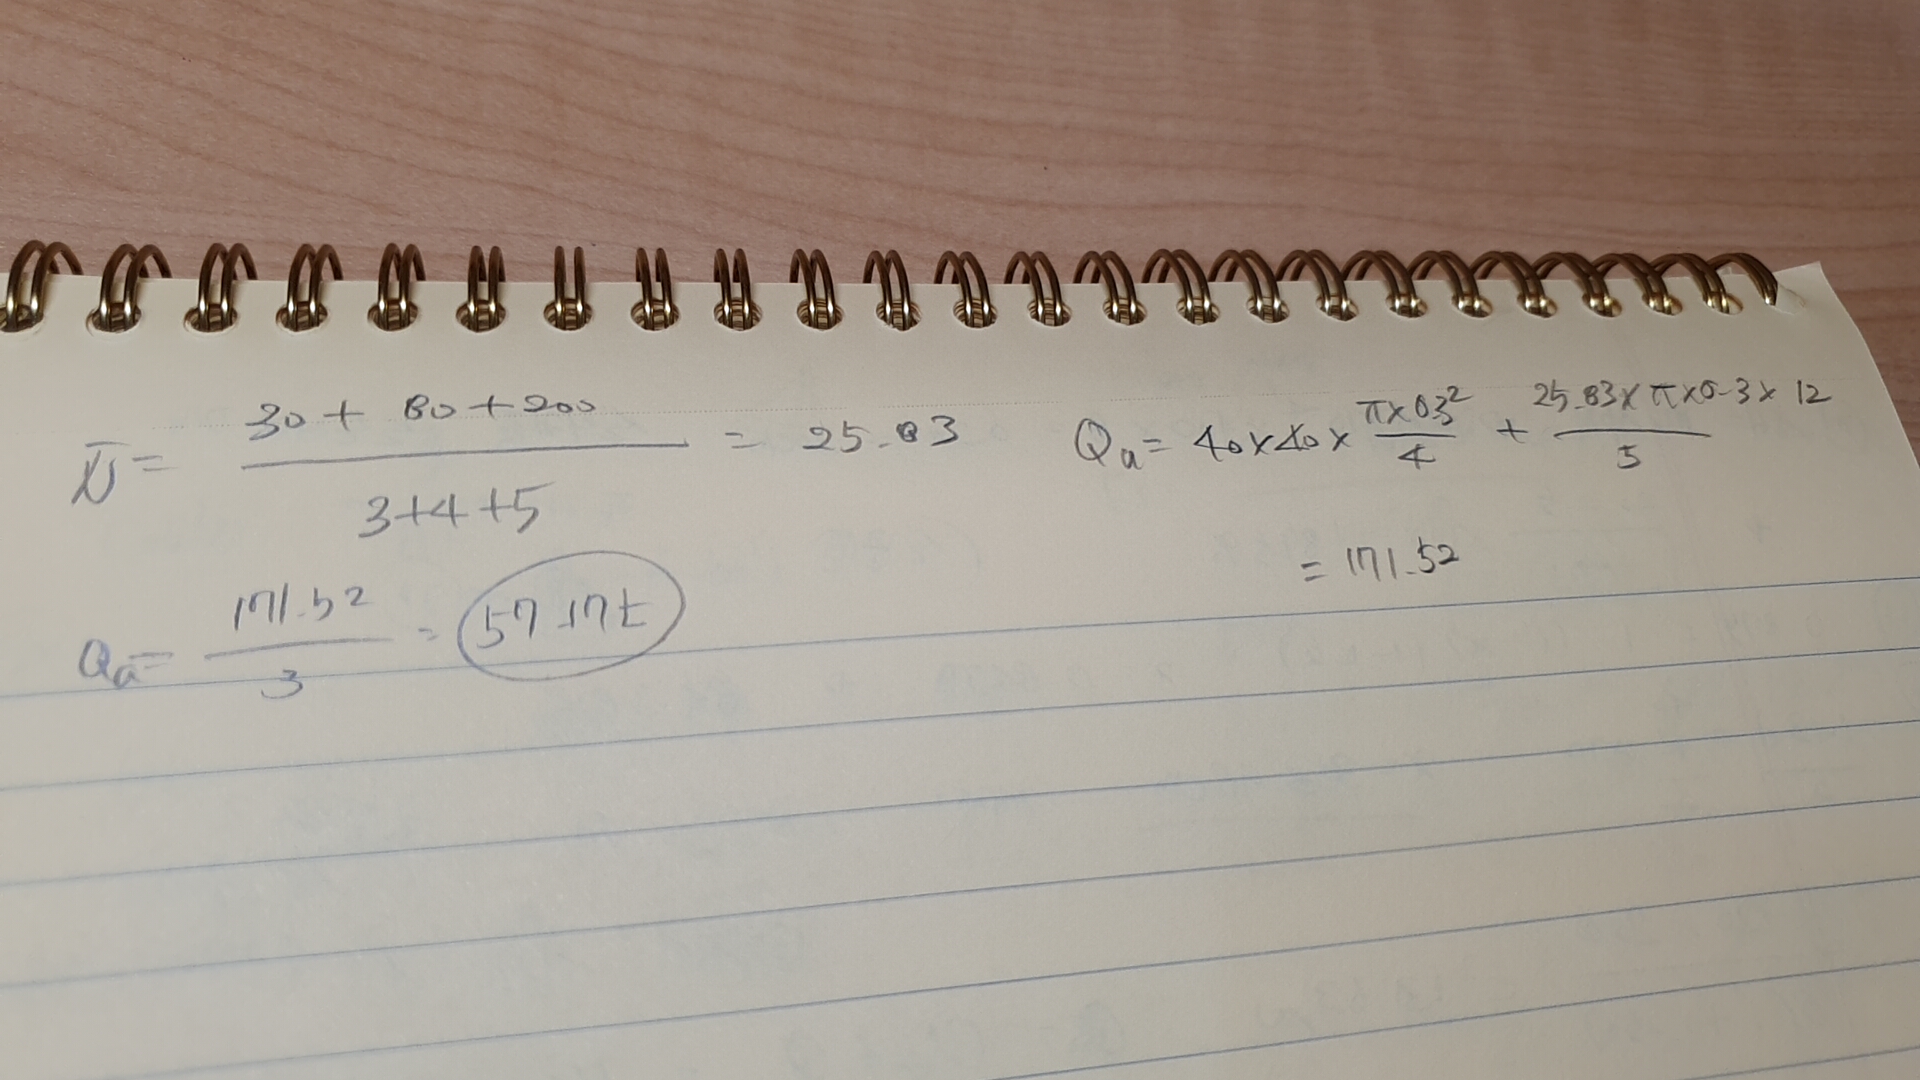 N̄ = (30 + 80 + 200) / (3+4+5) = 25.83
Qu = 40×40× (π×0.3²)/4 + (25.83×π×0.3×12)/5
= 171.52
Qa = 171.52 / 3 = 57.17t